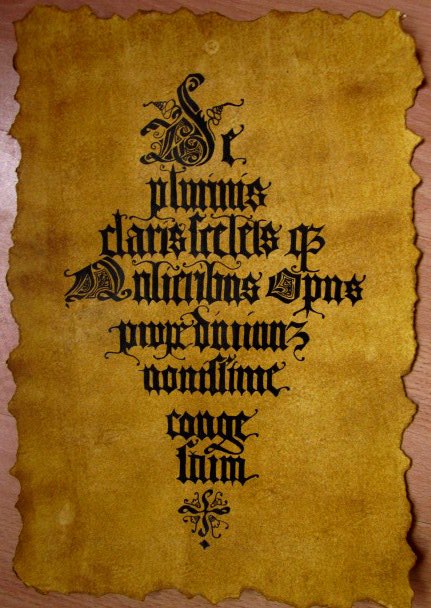 De
plurimis
claris ſceletis qꝫ
Mulieribus Opus
prope diuinuꝫ
nouiſſime
conge
ſtum